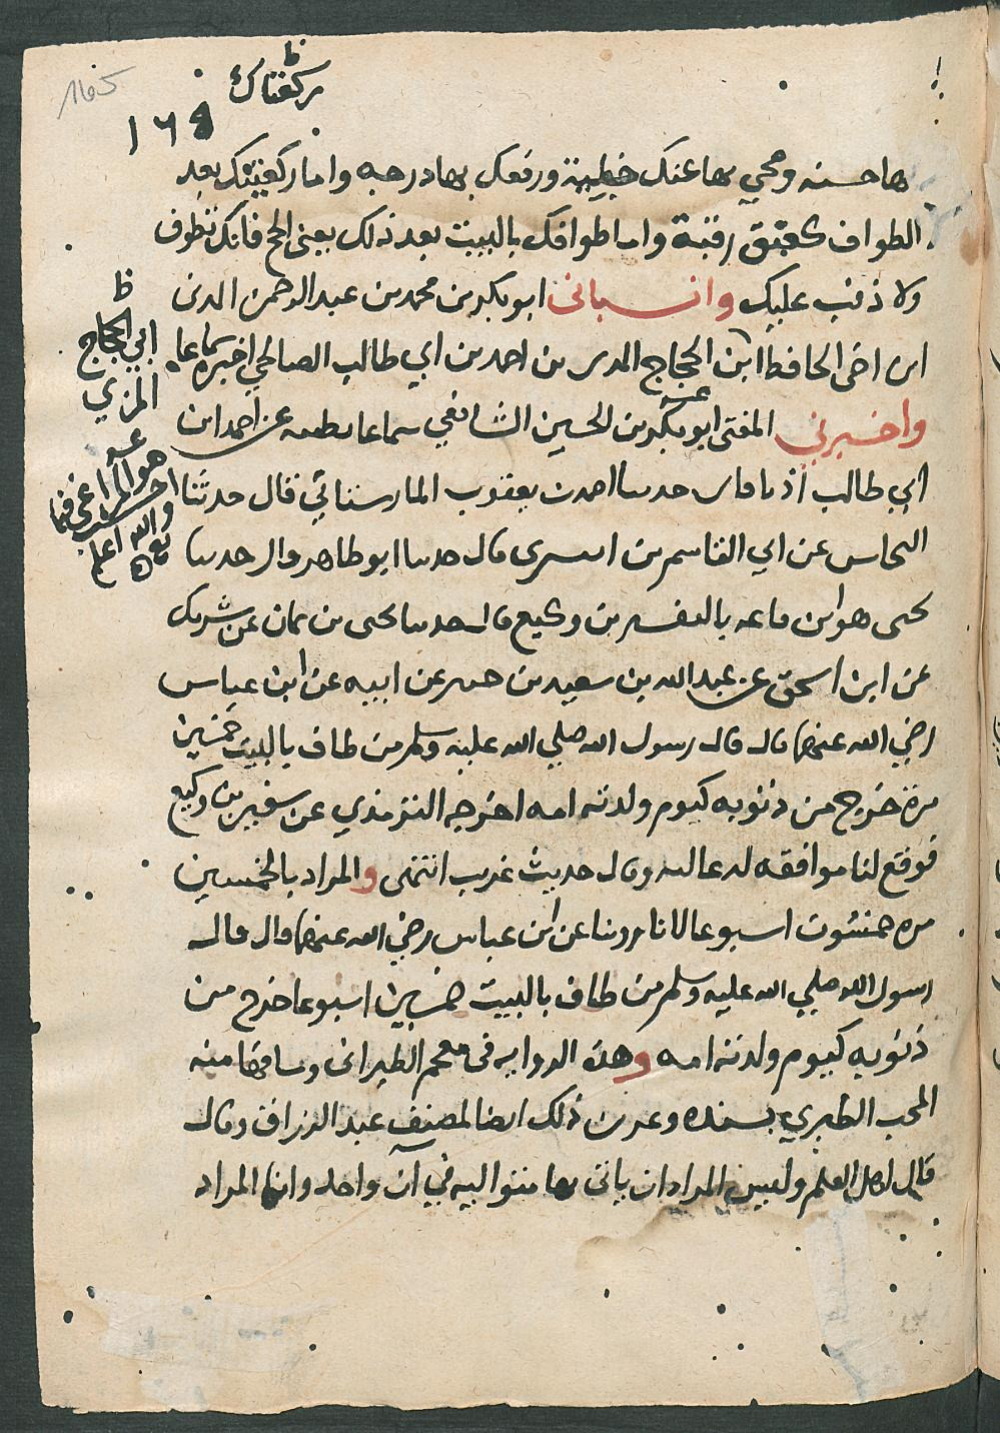 ظ
ركعتاك
بها حسنه ومحي بها عنك خطيئة ورفعك بها درجه واما ركعتيك بعد
الطواف كعتق رقبة واما طوافك بالبيت بعد ذلك يعنى الحج فانك تطوف
ولا ذنب عليك وانسبانى ابو بكر بن محمد بن عبد الرحمن المدنى
ابن اخى الحافظ ابن الحجاج المدى بن احمد بن ابي طالب الصالحي اخبره سماعا
واخبرني المفتى ابو بكر بن الحسين الشافعي سماعا بطيبه عن احمد ابن
ابي طالب قال حدثنا احمد بن يعقوب المارستاني قال حدثنا
النحاس عن ابي القاسم بن البسرى قال حدثنا ابو طاهر قال حدثنا
يحيى هو ابن صاعد بن وكيع قال حدثنا يحيى بن يمان عن شريك
عن ابن اسحق عن عبد الله بن سعيد بن جبير عن ابيه عن ابن عباس
رضي الله عنهما قال قال رسول الله صلي الله عليه وسلم من طاف بالبيت خمسين
مرة خرج من ذنوبه كيوم ولدته امه اخرجه الترمذي عن سفين بن وكيع
فوقع لنا موافقه له عاليه وقال حديث غريب انتهى والمراد بالخمسين
مره خمسون اسبوعا لانا روينا عن ابن عباس رضي الله عنهما قال قال
رسول الله صلي الله عليه وسلم من طاف بالبيت خمسين اسبوعا خرج من
ذنوبه كيوم ولدته امه وهذه الروايه فى معجم الطبرانى وساقها منه
المحب الطبري بسنده وعزى ذلك ايضا لمصنف عبد الرزاق وقال
قال اهل العلم وليس المراد ان ياتى بها متواليه في ان واحد وانما المراد
ظ
ابي الحجاج
المزي
والله اعلم